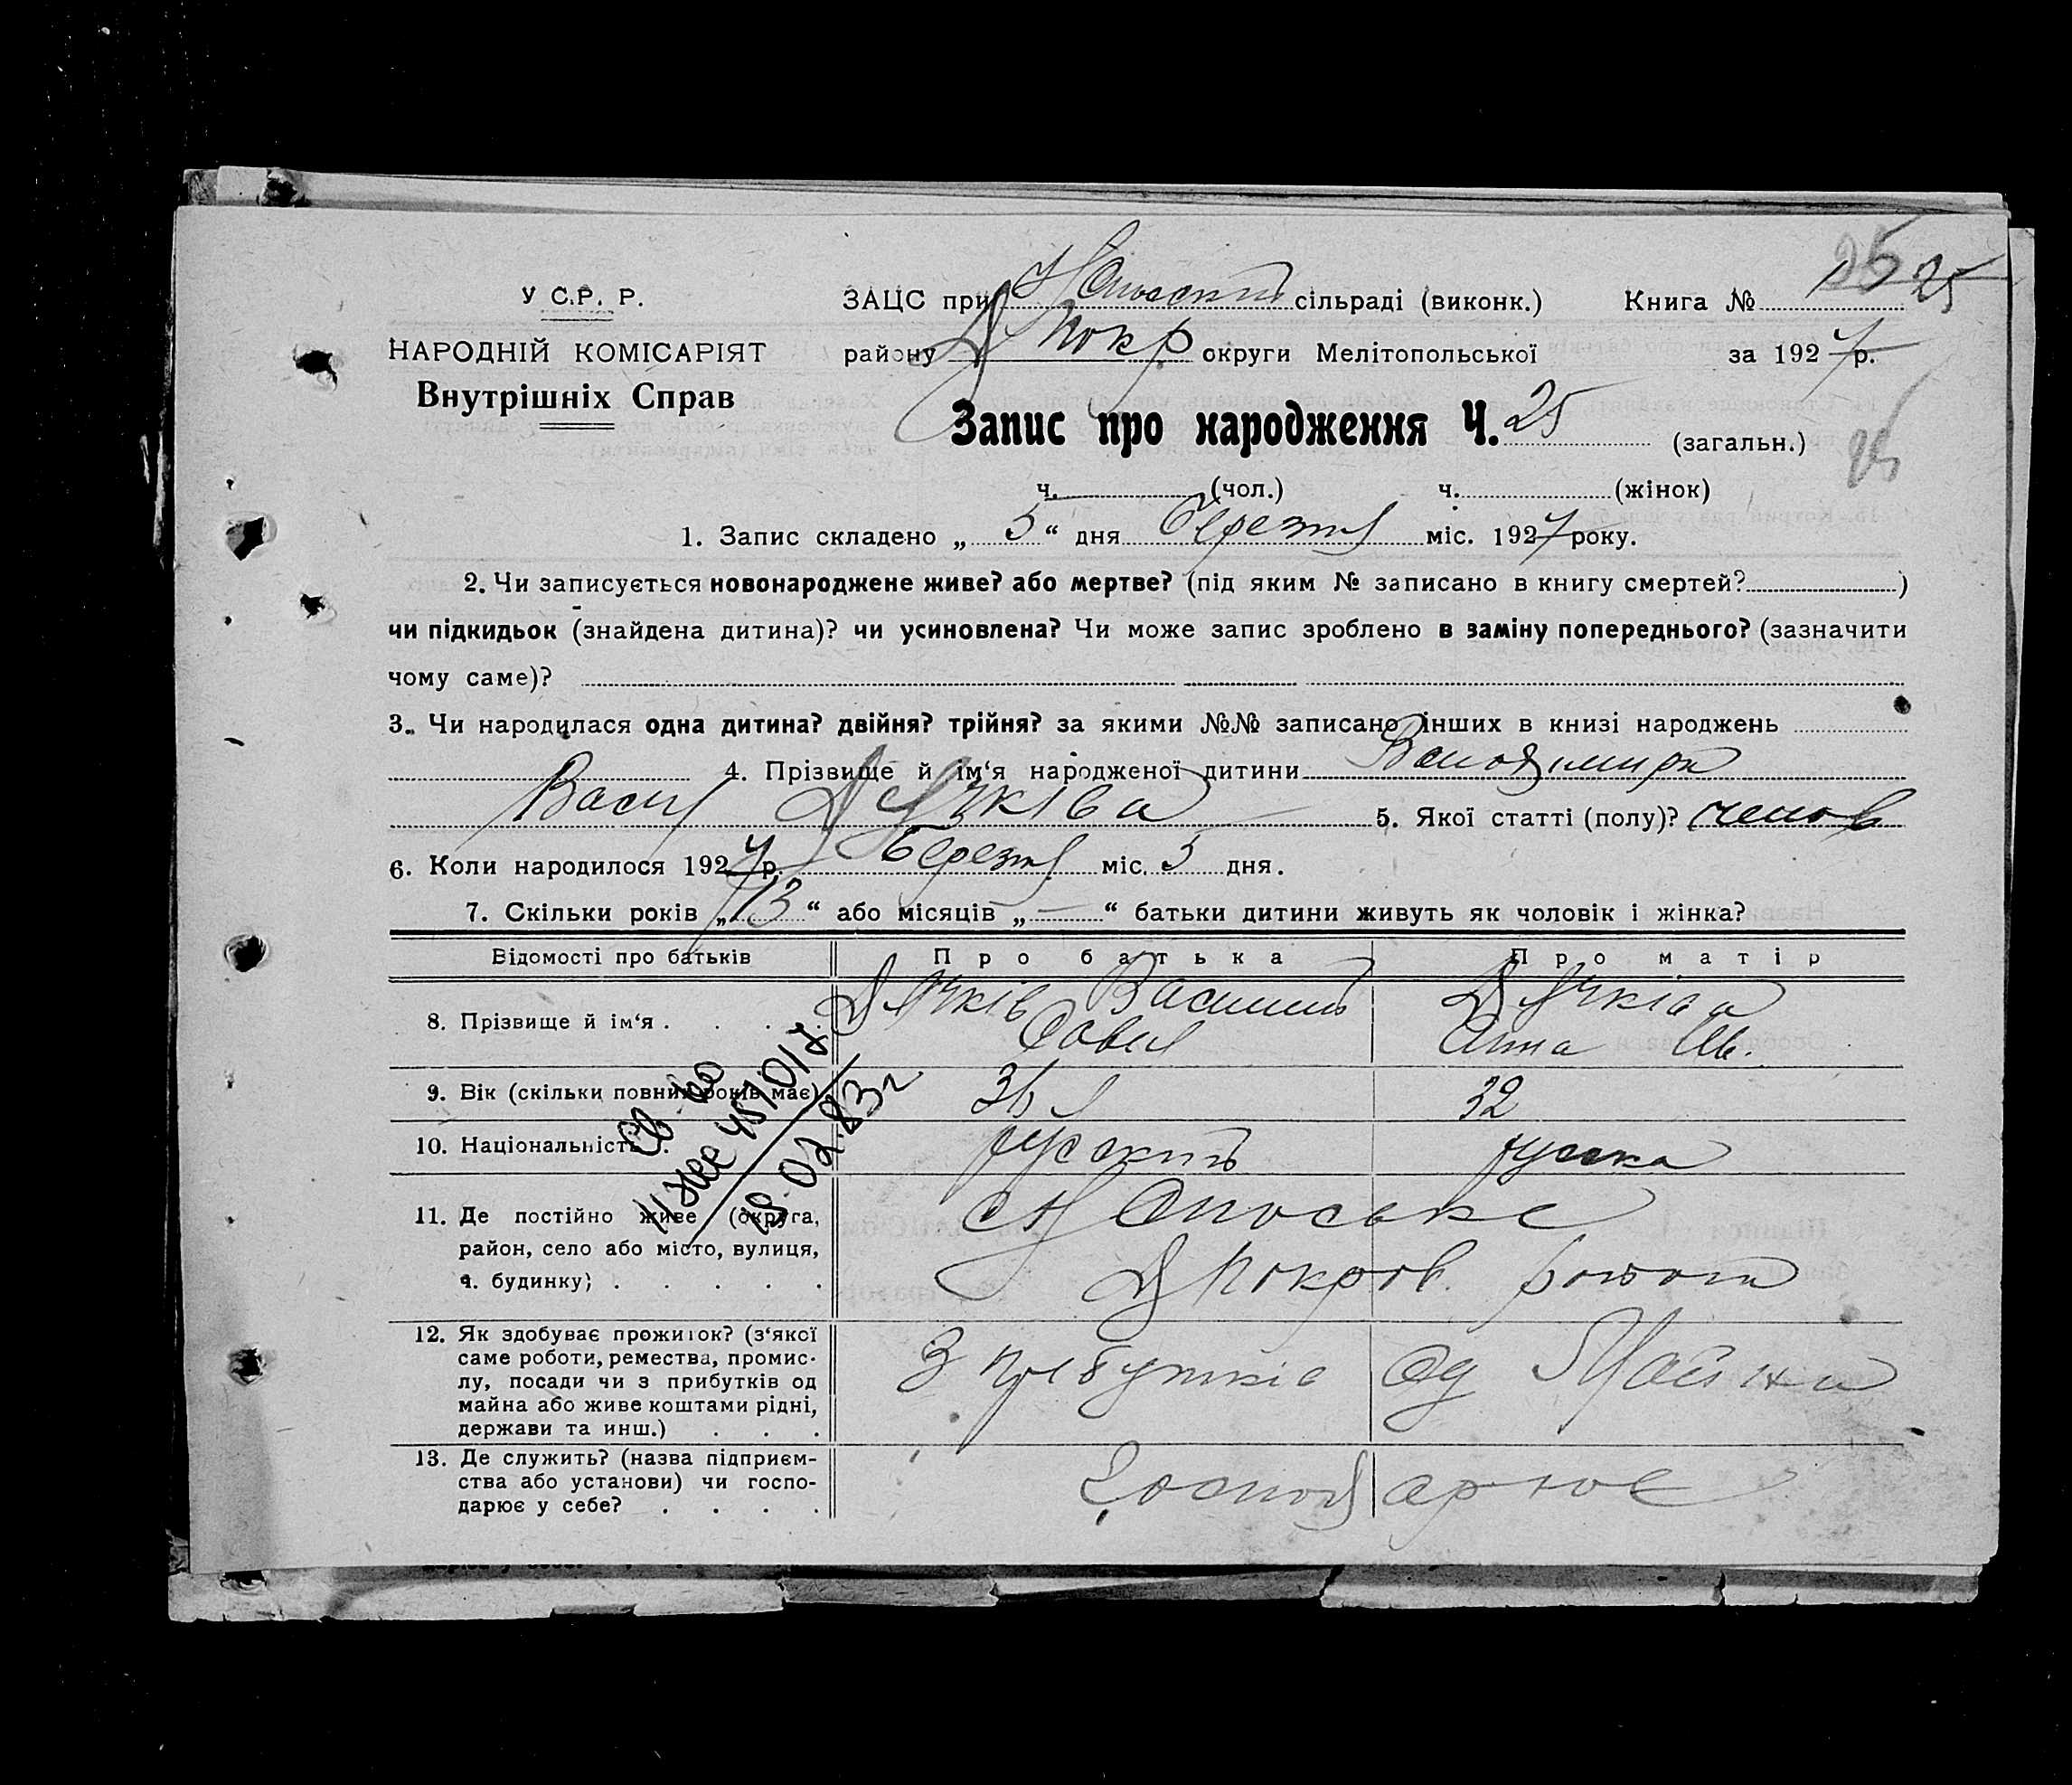 25
У С.Р. Р.
ЗАЦС при сільраді (виконк.) Книга № 25
НАРОДНІЙ КОМІСАРІЯТ
району Д Покр округи Мелітопольської за 1927 р.
Внутрішніх Справ
Запис про народження Ч. 25 (загальн.)
25
ч. (чол.) ч. (жінок)
1. Запис складено „ 5 “ дня березня міс. 1927 року.
2. Чи записується новонароджене живе? або мертве? (під яким № записано в книгу смертей? )
чи підкидьок (знайдена дитина)? чи усиновлена? Чи може запис зроблено в заміну попереднього? (зазначити
чому саме)?
3. Чи народилася одна дитина? двійня? трійня? за якими №№ записано інших в книзі народжень
4. Прізвище й ім‘я народженої дитини
Васил Дячківа 5. Якої статті (полу)? чолов
6. Коли народилося 1927 р. Березня міс. 5 дня.
7. Скільки років „ 13 “ або місяців „ — “ батьки дитини живуть як чоловік і жінка?
Відомості про батьків Про батька Про матір
8. Прізвище й ім‘я . . . . . Дячків Василий Савел Дячківа Анна Ив.
9. Вік (скільки повних років має) 36 л 32
10. Національність . руский руска
11. Де постійно живе (округа,
район, село або місто, вулиця,
ч. будинку) . . . . . Д Покров. району
12. Як здобуває прожиток? (з‘якої
саме роботи, ремества, промис-
лу, посади чи з прибутків од
майна або живе коштами рідні,
держави та инш.) . . . З прибутків од Майна
13. Де служить? (назва підприєм-
ства або установи) чи госпо-
дарює у себе? . . . . Господарює
18.02.83 г